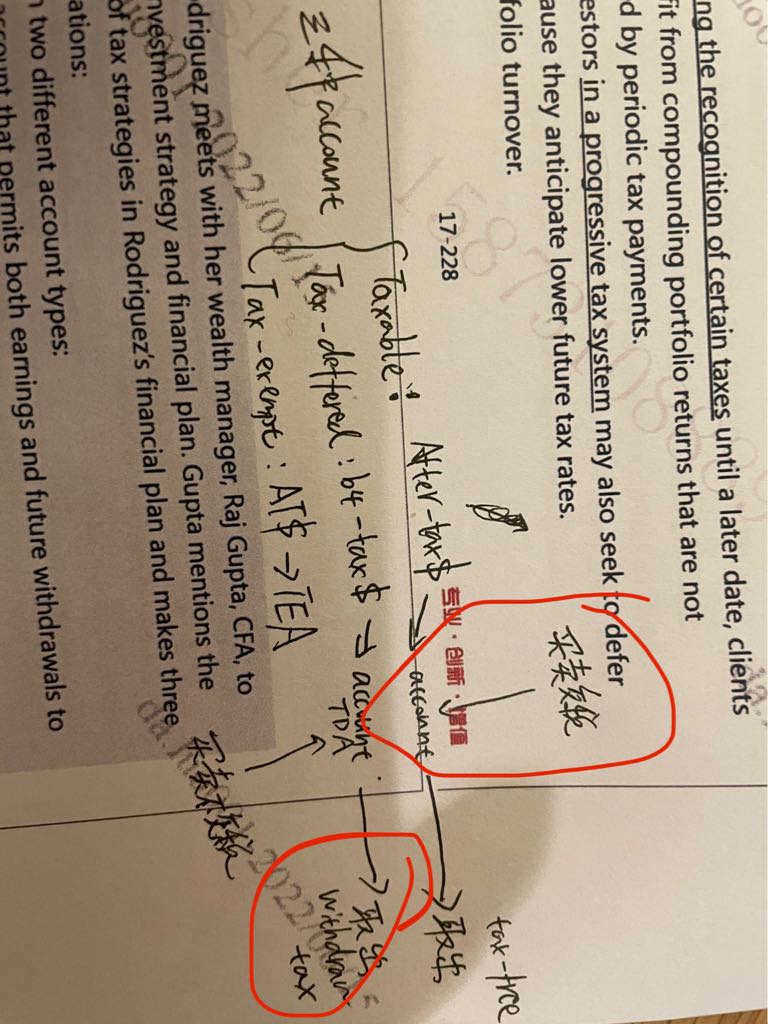 ng the recognition of certain taxes until a later date, clients
fit from compounding portfolio returns that are not
d by periodic tax payments.
estors in a progressive tax system may also seek to defer
ause they anticipate lower future tax rates.
folio turnover.
买卖交税
17-228
专业·创新·增值
After-tax$ → account → 取出
tax-free
三个 account
Taxable:
Tax-deffered: b4-tax$ → account. → 取出
TDA
withdraw
tax
Tax-exempt: AT$ → TEA
买卖不交税
odriguez meets with her wealth manager, Raj Gupta, CFA, to
nvestment strategy and financial plan. Gupta mentions the
of tax strategies in Rodriguez's financial plan and makes three
ations:
n two different account types:
account that permits both earnings and future withdrawals to